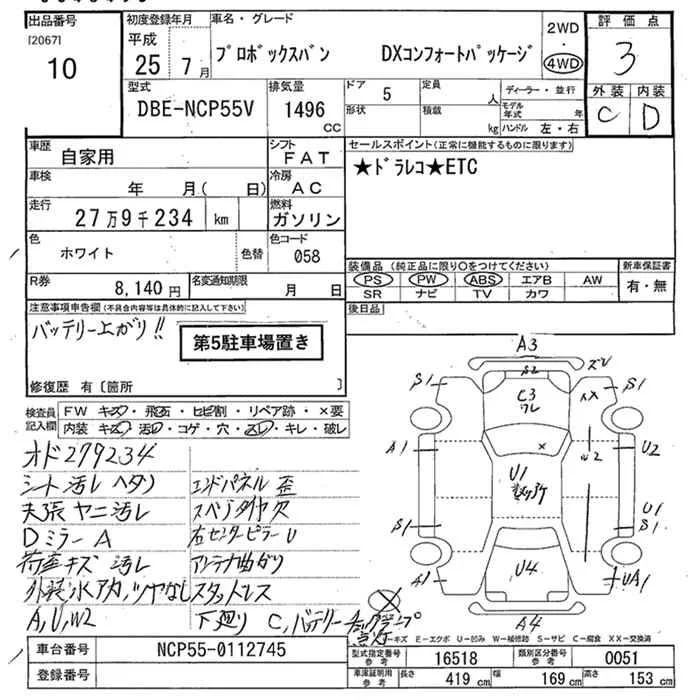 出品番号
[2067]
10
初度登録年月
平成
25年7月
車名・グレード
プロボックスバン DXコンフォートパッケージ
2WD
・
4WD
評価点
3
外装 内装
C D
型式
DBE-NCP55V
排気量
1496
CC
ドア 5
定員 人
形状
積載 kg
ディーラー・並行
モデル年式 年
ハンドル 左・右
車歴
自家用
シフト
FAT
車検
年 月( 日)
冷房
AC
走行
27万9千234 km
燃料
ガソリン
色
ホワイト
色替
色コード
058
R券
8,140円
名変通知期限
月 日
セールスポイント(正常に機能するものに限ります)
★ドラレコ★ETC
装備品(純正品に限り○をつけてください)
PS PW ABS エアB AW
SR ナビ TV カワ
新車保証書
有・無
後日品
注意事項申告欄(不具合内容等は具体的に記入して下さい)
バッテリー上がり!!
第5駐車場置き
修復歴 有〔箇所 〕
検査員記入欄
FW キズ・飛石・ヒビ割・リペア跡・×要
内装 キズ・汚レ・コゲ・穴・スレ・キレ・破レ
オド279234
シート汚レ ヘタリ
天張ヤニ汚レ
Dミラー A
荷室キズ 汚レ
外装水アカ,ツヤなし
A,U,W2
エンドパネル 歪
スペアタイヤ欠
右センターピラーU
アンテナ曲がり
スタットレス
下廻り C,バテリー
チェックランプ
点灯
A3
ズレ
S1
S2
C3
ワレ
XX
S1
A1
W2
U2
U1
S1
U1
S1
A1
U4
UA1
A4
A-キズ E-エクボ U-凹み W-補修跡 S-サビ C-腐食 XX-交換済
車台番号
NCP55-0112745
登録番号
型式指定番号
参考
16518
類別区分番号
参考
0051
車庫証明用
参考
長さ 419 cm
幅 169 cm
高さ 153 cm